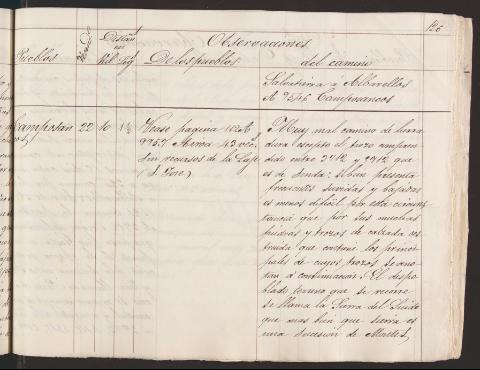 126
Pueblos
Distan
Kil
Observaciones
De los pueblos
del camino
Salvatierra á Albarellos
A 9546 Camposancos
22
10
1½
Vease pagina
9957 Aroea 43 vec.s
Sin recursos de la
(S. Jose)
Muy mal camino de herra
dura escepto el trozo compren
dido entre 3712 y 5912 que
es de senda: si bien presenta
frecuentes suvidas y bajadas
es menos dificil por esta circuns
tancia que por sus muchas
piedras y trozos de calzada des
truida que contiene los princi
pales de cuyos trozos se ano
tan á continuacion. El despo
blado terreno que se recorre
se llama la Sierra del Suido
que mas bien que sierra es
una sucesion de Montes